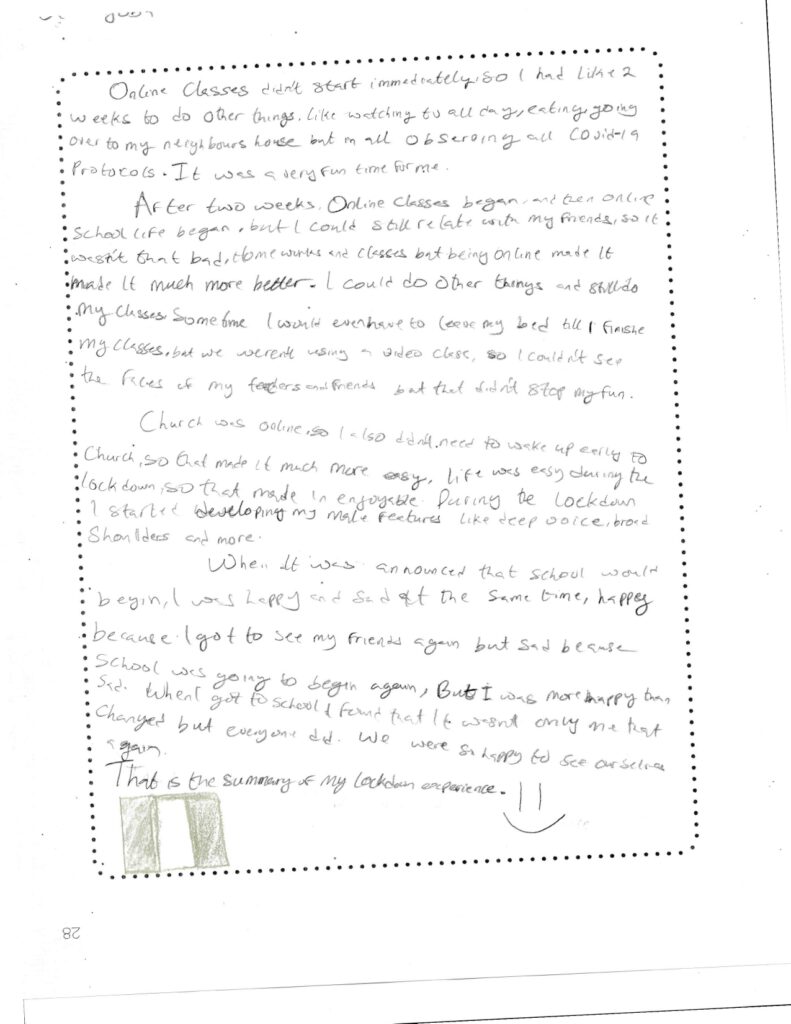 Online Classes didn't start immediately, so I had like 2
weeks to do other things. Like watching tv all day, eating, going
over to my neighbours house but in all observing all Covid-19
Protocols. It was a very fun time for me.
After two weeks. Online Classes began, and then online
school life began, but I could still relate with my friends, so it
wasn't that bad, Home works and classes but being online made it
made it much more better. I could do other things and still do
my classes. Sometime I would even have to leave my bed till I finishe
my classes, but we weren't using a video class, so I couldn't see
the faces of my and friends but that didn't stop my fun.
Church was online, so I also didn't need to wake up early to
Church, so that made it much more easy. life was easy during the
lockdown, so that made in enjoyable. During the lockdown
I started developing my male features like deep voice, broad
Shoulders and more.
When It was announced that school would
begin, I was happy and sad at the same time, happy
because I got to see my friends again but sad beause
school was going to begin again, But I was more happy than
sad. When I got to school I found that It wasn't only me that
changed but everyone did. We were so happy to see ourselves
again.
That is the summary of my lockdown experience.
28